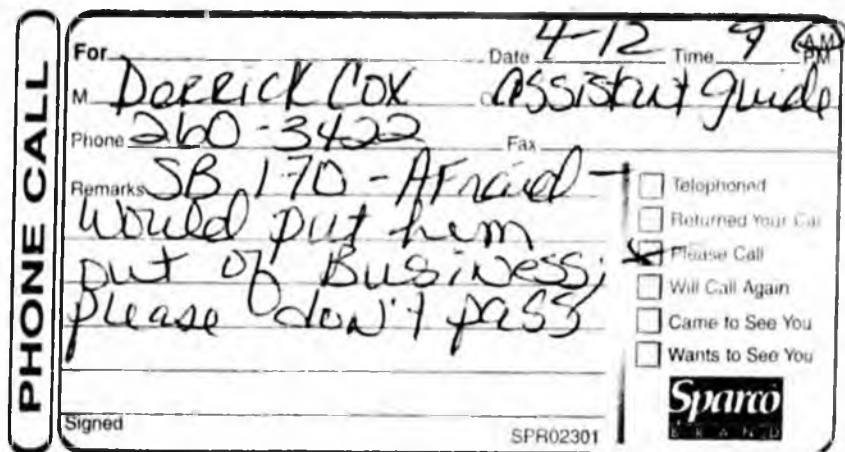 PHONE CALL
For Date 4-12 Time 9 AM PM
M Derrick Cox Assistant guide
Phone 260-3422 Fax
Remarks SB 170 - Afraid -
would put him
out of Business;
please don't pass
Telephoned
Returned Your Call
Please Call
Will Call Again
Came to See You
Wants to See You
Sparco
BRAND
Signed
SPR02301